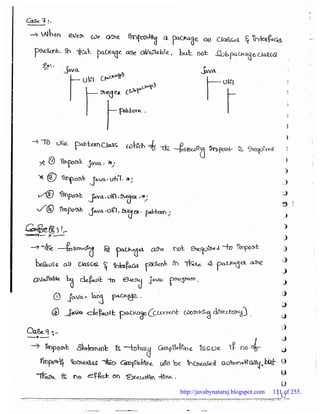 Case 7:-
→ When ever we are importing a package all classes & interfaces
present in that package are available, but not subpackage classes
Ex:-
java java
util (package) util
regex (subpackage)
pattern.
→ To use pattern class which of the following import is required
× ① import java.*;
× ② import java.util.*;
✓③ import java.util.regex.*;
✓④ import java.util.regex.pattern;
Case 8:-
→ The following 2 packages are not required to import
because all classes & interfaces present in these 2 packages are
available by default to every java program.
① java.lang package.
② java default package (current working directory).
Case 9:-
→ import statement is totally compiletime issue if no. of
imports increases then compiletime will be increased automatically, but
there is no effect on execution time.
http://javabynataraj.blogspot.com 131 of 255.